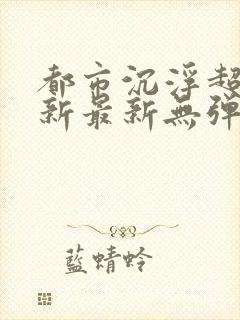 都市沉浮超
新最新無彈
藍蜻蛉